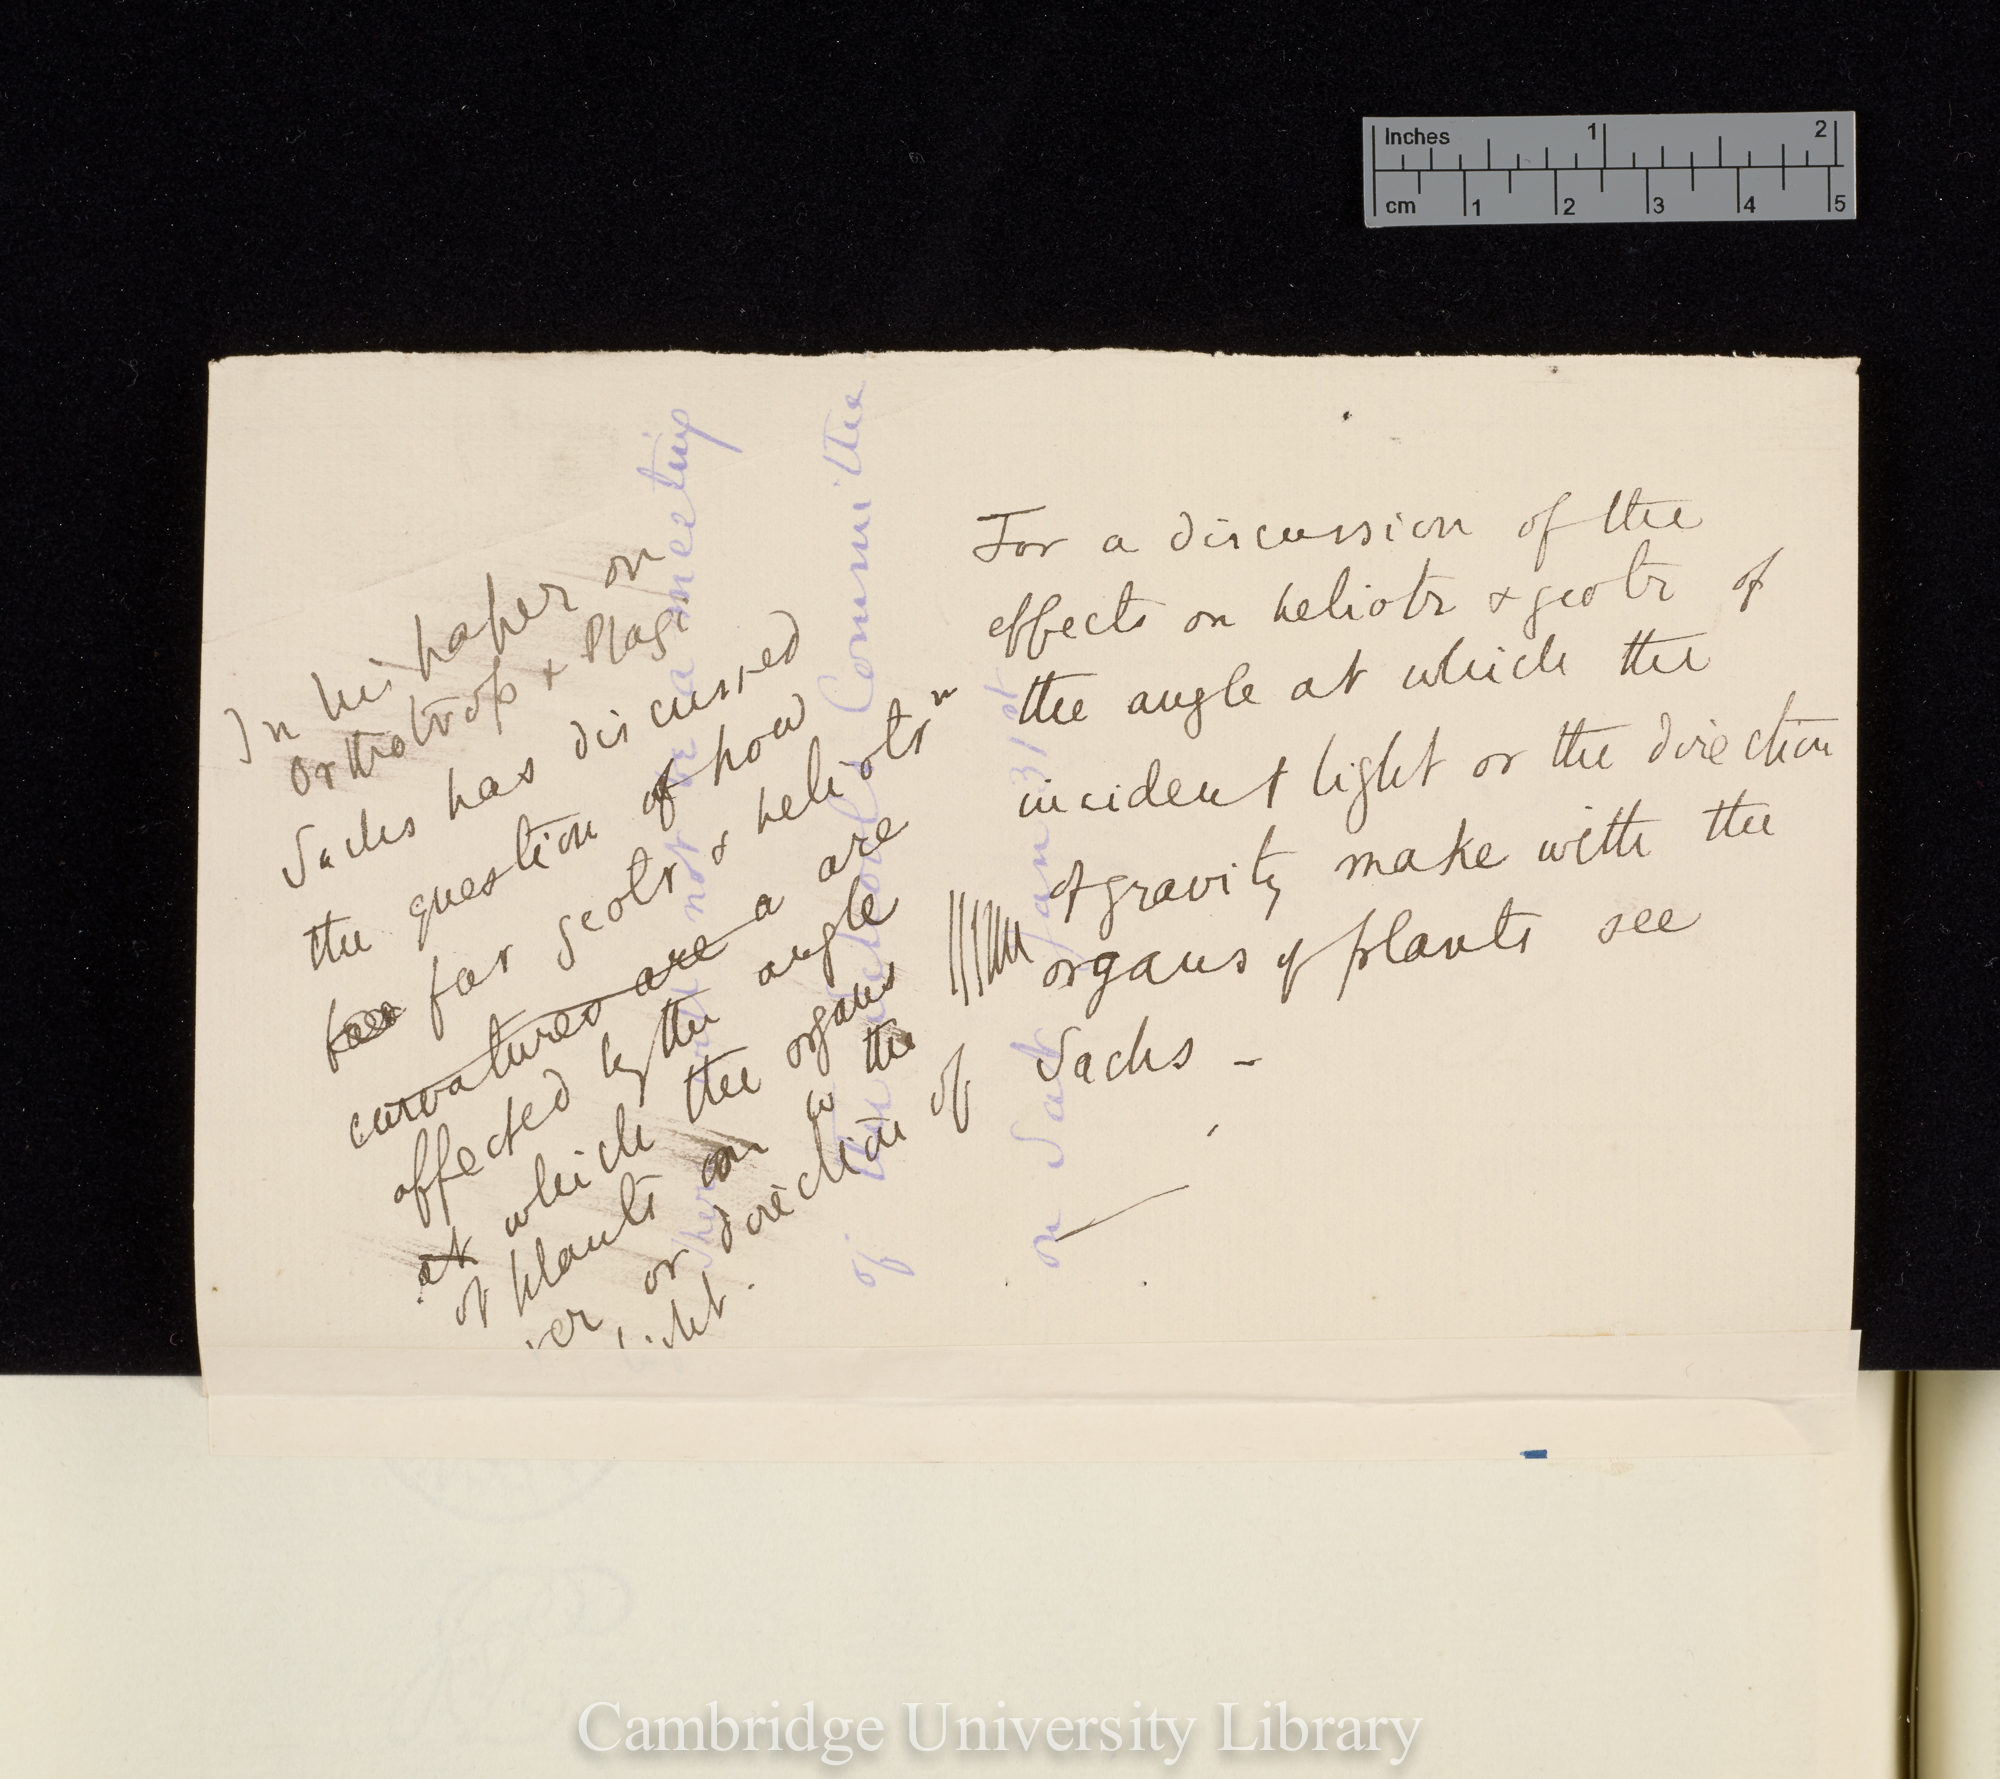 Inches 1 2
cm 1 2 3 4 5
In his paper on
Orthotrop & Plagi
Sachs has discussed
the question of how
far geotr & heliotrn
curvatures are a are
affected by the angle
at which the organs
of plants on to the
or direction of
light.
For a discussion of the
effects on heliotr & geotr of
the angle at which the
incident light or the direction
of gravity make with the
organs of plants see
Sachs -
There will not be a meeting
of the School Committee
on Sat Jan 31st
Cambridge University Library